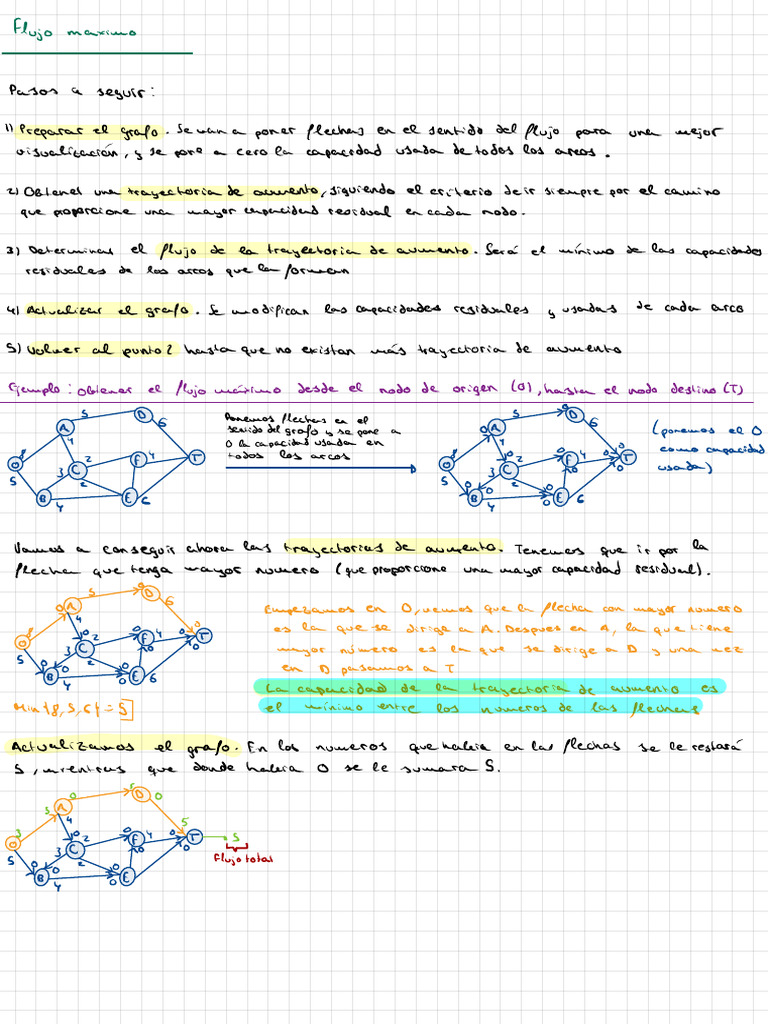 Flujo maximo
Pasos a seguir:
1) Preparar el grafo. Se van a poner flechas en el sentido del flujo para una mejor
visualización, y se pone a cero la capacidad usada de todos los arcos.
2) Obtener una trayectoria de aumento, siguiendo el criterio de ir siempre por el camino
que proporcione una mayor capacidad residual en cada nodo.
3) Determinar el flujo de la trayectoria de aumento. Será el mínimo de las capacidades
residuales de los arcos que la forman
4) Actualizar el grafo. Se modifican las capacidades residuales y usadas de cada arco
5) Volver al punto 2 hasta que no existan más trayectoria de aumento
Ejemplo: Obtener el flujo máximo desde el nodo de origen (O), hasta el nodo destino (T)
O A B C D E F T 8 5 5 4 3 2 2 4 4 6 6
Ponemos flechas en el
sentido del grafo y se pone a
0 la capacidad usada en
todos los arcos
O A B C D E F T
(ponemos el 0
como capacidad
usada)
Vamos a conseguir ahora las trayectorias de aumento. Tenemos que ir por la
flecha que tenga mayor numero (que proporcione una mayor capacidad residual).
O A B C D E F T
Empezamos en O, vemos que la flecha con mayor numero
es la que se dirige a A. Despues en A, la que tiene
mayor número es la que se dirige a D y una vez
en D pasamos a T
La capacidad de la trayectoria de aumento es
el mínimo entre los numeros de las flechas
Min {8, 5, 6} = 5
Actualizamos el grafo. En los numeros que había en las flechas se le restará
5, mientras que donde había 0 se le sumara 5.
O A B C D E F T
5
Flujo total